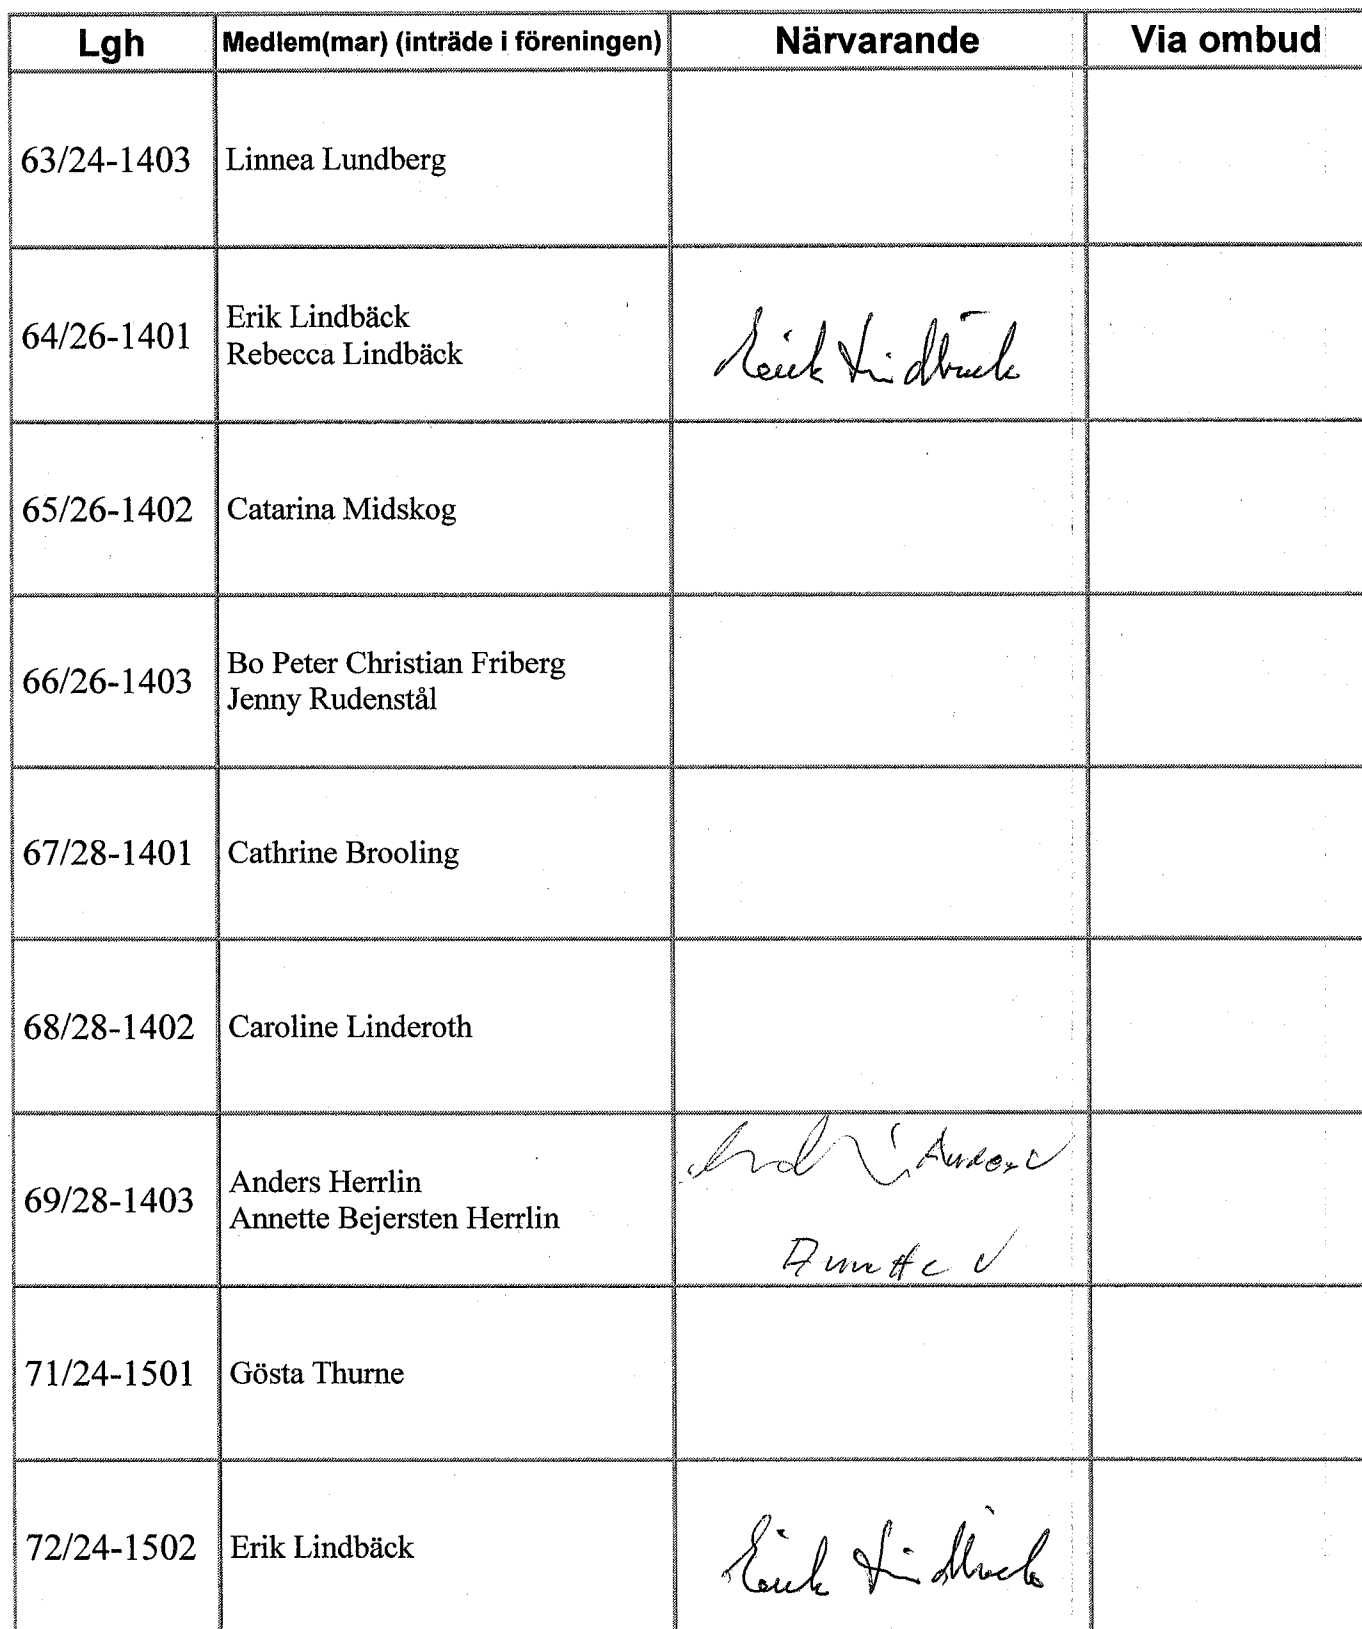 Lgh Medlem(mar) (inträde i föreningen) Närvarande Via ombud
63/24-1403 Linnea Lundberg
64/26-1401 Erik Lindbäck
Rebecca Lindbäck
Erik Lindbäck
65/26-1402 Catarina Midskog
66/26-1403 Bo Peter Christian Friberg
Jenny Rudenstål
67/28-1401 Cathrine Brooling
68/28-1402 Caroline Linderoth
69/28-1403 Anders Herrlin
Annette Bejersten Herrlin
Anders
Annette
71/24-1501 Gösta Thurne
72/24-1502 Erik Lindbäck
Erik Lindbäck